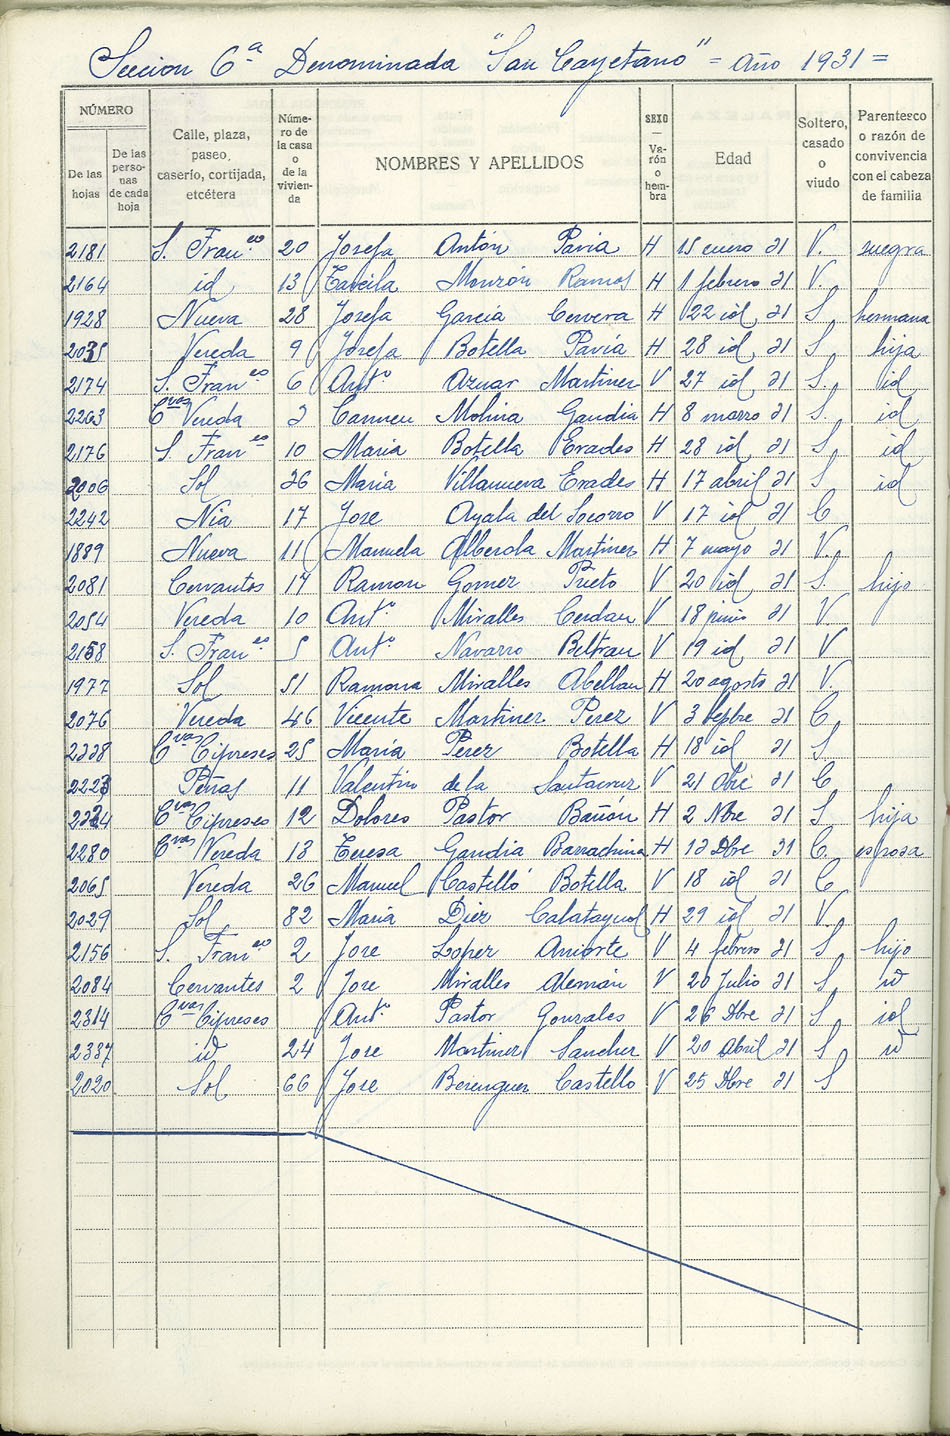 Seccion 6ª Denominada "San Cayetano" = Año 1931 =
NÚMERO
De las hojas
De las perso-nas de cada hoja
Calle, plaza, paseo, caserío, cortijada, etcétera
Núme-ro de la casa o de la vivien-da
NOMBRES Y APELLIDOS
SEXO — Va-rón o hem-bra
Edad
Soltero, casado o viudo
Parentesco o razón de convivencia con el cabeza de familia
2181 S. Fran.co 20 Josefa Antón Pavia H 15 enero 31 V. suegra
2164 id 13 Monzón Ramos H 1 febrero 31 V.
1928 Nueva 28 Josefa Garcia Cervera H 22 id 31 S. hermana
2035 Vereda 9 Josefa Botella Pavia H 28 id 31 S. hija
2174 S. Fran.co 6 Ant.º Aznar Martinez V 27 id 31 S. id
2203 Cvas Vereda 3 Carmen Molina Gandia H 8 marzo 31 S. id
2176 S. Fran.co 10 Maria Botella Erades H 28 id 31 S. id
2006 Sol 36 Maria Villanueva Erades H 17 abril 31 S. id
2242 Nia 17 Jose Ayala del Socorro V 17 id 31 C
1889 Nueva 11 Manuela Alberola Martinez H 7 mayo 31 V.
2081 Cervantes 17 Ramon Gomez Prieto V 20 id 31 S. hijo
2054 Vereda 10 Ant.º Miralles Cerdan V 18 junio 31 V.
2158 S. Fran.co 5 Ant.º Navarro Beltran V 19 id 31 V
1977 Sol 51 Ramona Miralles Abellan H 20 agosto 31 V.
2076 Vereda 46 Vicente Martinez Perez V 3 Sepbre 31 C.
2338 Cvas Cipreses 25 Maria Perez Botella H 18 id 31 S.
2223 Peñas 11 Valentin de la Santacruz V 21 Obre 31 C
2324 Cvas Cipreses 12 Dolores Pastor Bañón H 2 Nbre 31 S hija
2280 Cvas Vereda 13 Teresa Gandia Barrachina H 13 Dbre 31 C. esposa
2065 Vereda 26 Manuel Castelló Botella V 18 id 31 C
2029 Sol 82 Maria Diez Calatayud H 29 id 31 V.
2156 S. Fran.co 2 Jose Lopez Aniorte V 4 febrero 31 S. hijo
2084 Cervantes 2 Jose Miralles Alemán V 20 Julio 31 S. id
2314 Cvas Cipreses Ant.º Pastor Gonzales V 26 Dbre 31 S. id
2337 id 24 Jose Martinez Sanchez V 20 Abril 31 S. id
2020 Sol 66 Jose Berenguer Castello V 25 Dbre 31 S